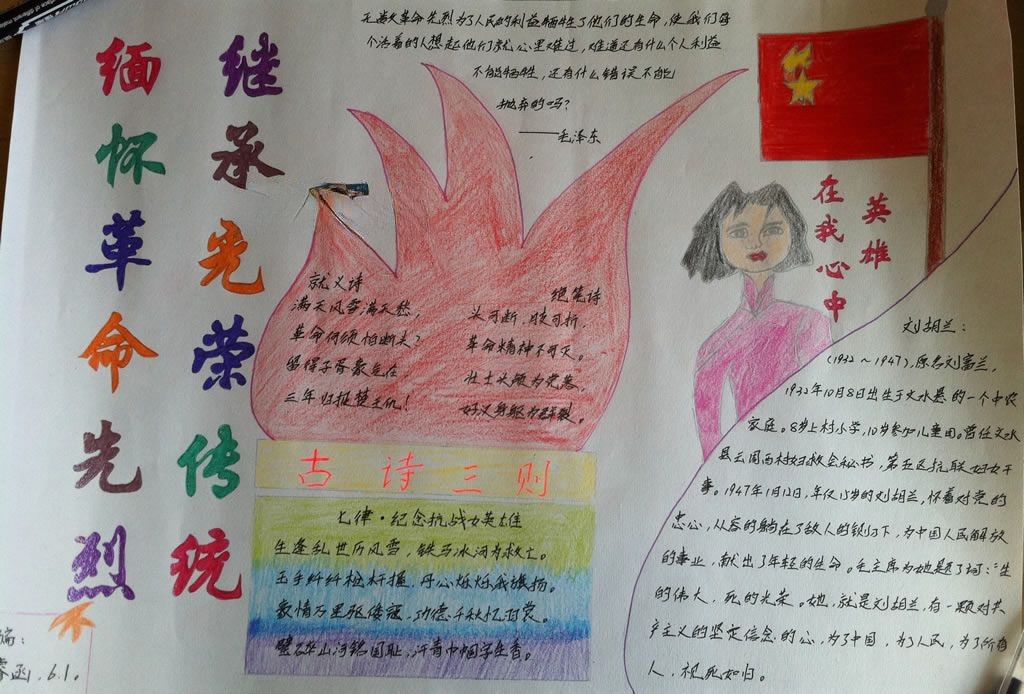 缅怀革命先烈
继承先荣传统
无数革命先烈为了人民的利益牺牲了他们的生命，使我们每
个活着的人想起他们就心里难过，难道还有什么个人利益
不能牺牲，还有什么错误不能
抛弃的吗？
——毛泽东
就义诗
满天风雪满天愁，
革命何须怕断头？
留得子胥豪气在，
三年归报楚王仇！
绝笔诗
头可断，肢可折，
革命精神不可灭。
壮士头颅为党落，
好汉身躯为群裂。
古诗三则
七律·纪念抗战女英雄
生逢乱世历风雪，铁马冰河为救亡。
玉手纤纤枪杆握，丹心烁烁我旗扬。
豪情万里驱倭寇，功德千秋忆羽裳。
山河铭国耻，汗青巾帼字生香。
英雄
在我心中
刘胡兰：
(1932～1947)，原名刘富兰，
1932年10月8日出生于文水县的一个中农
家庭。8岁上村小学，10岁参加儿童团。曾任文水
县云周西村妇救会秘书，第五区抗联妇女干
事。1947年1月12日，年仅15岁的刘胡兰，怀着对党的
忠心，从容的躺在了敌人的铡刀下，为中国人民解放
的事业，献出了年轻的生命。毛主席为她题了词：“生
的伟大，死的光荣。她，就是刘胡兰，有一颗对共
产主义的坚定信念的心，为了中国，为了人民，为了所有
人，视死如归。
编：
函，6.1。